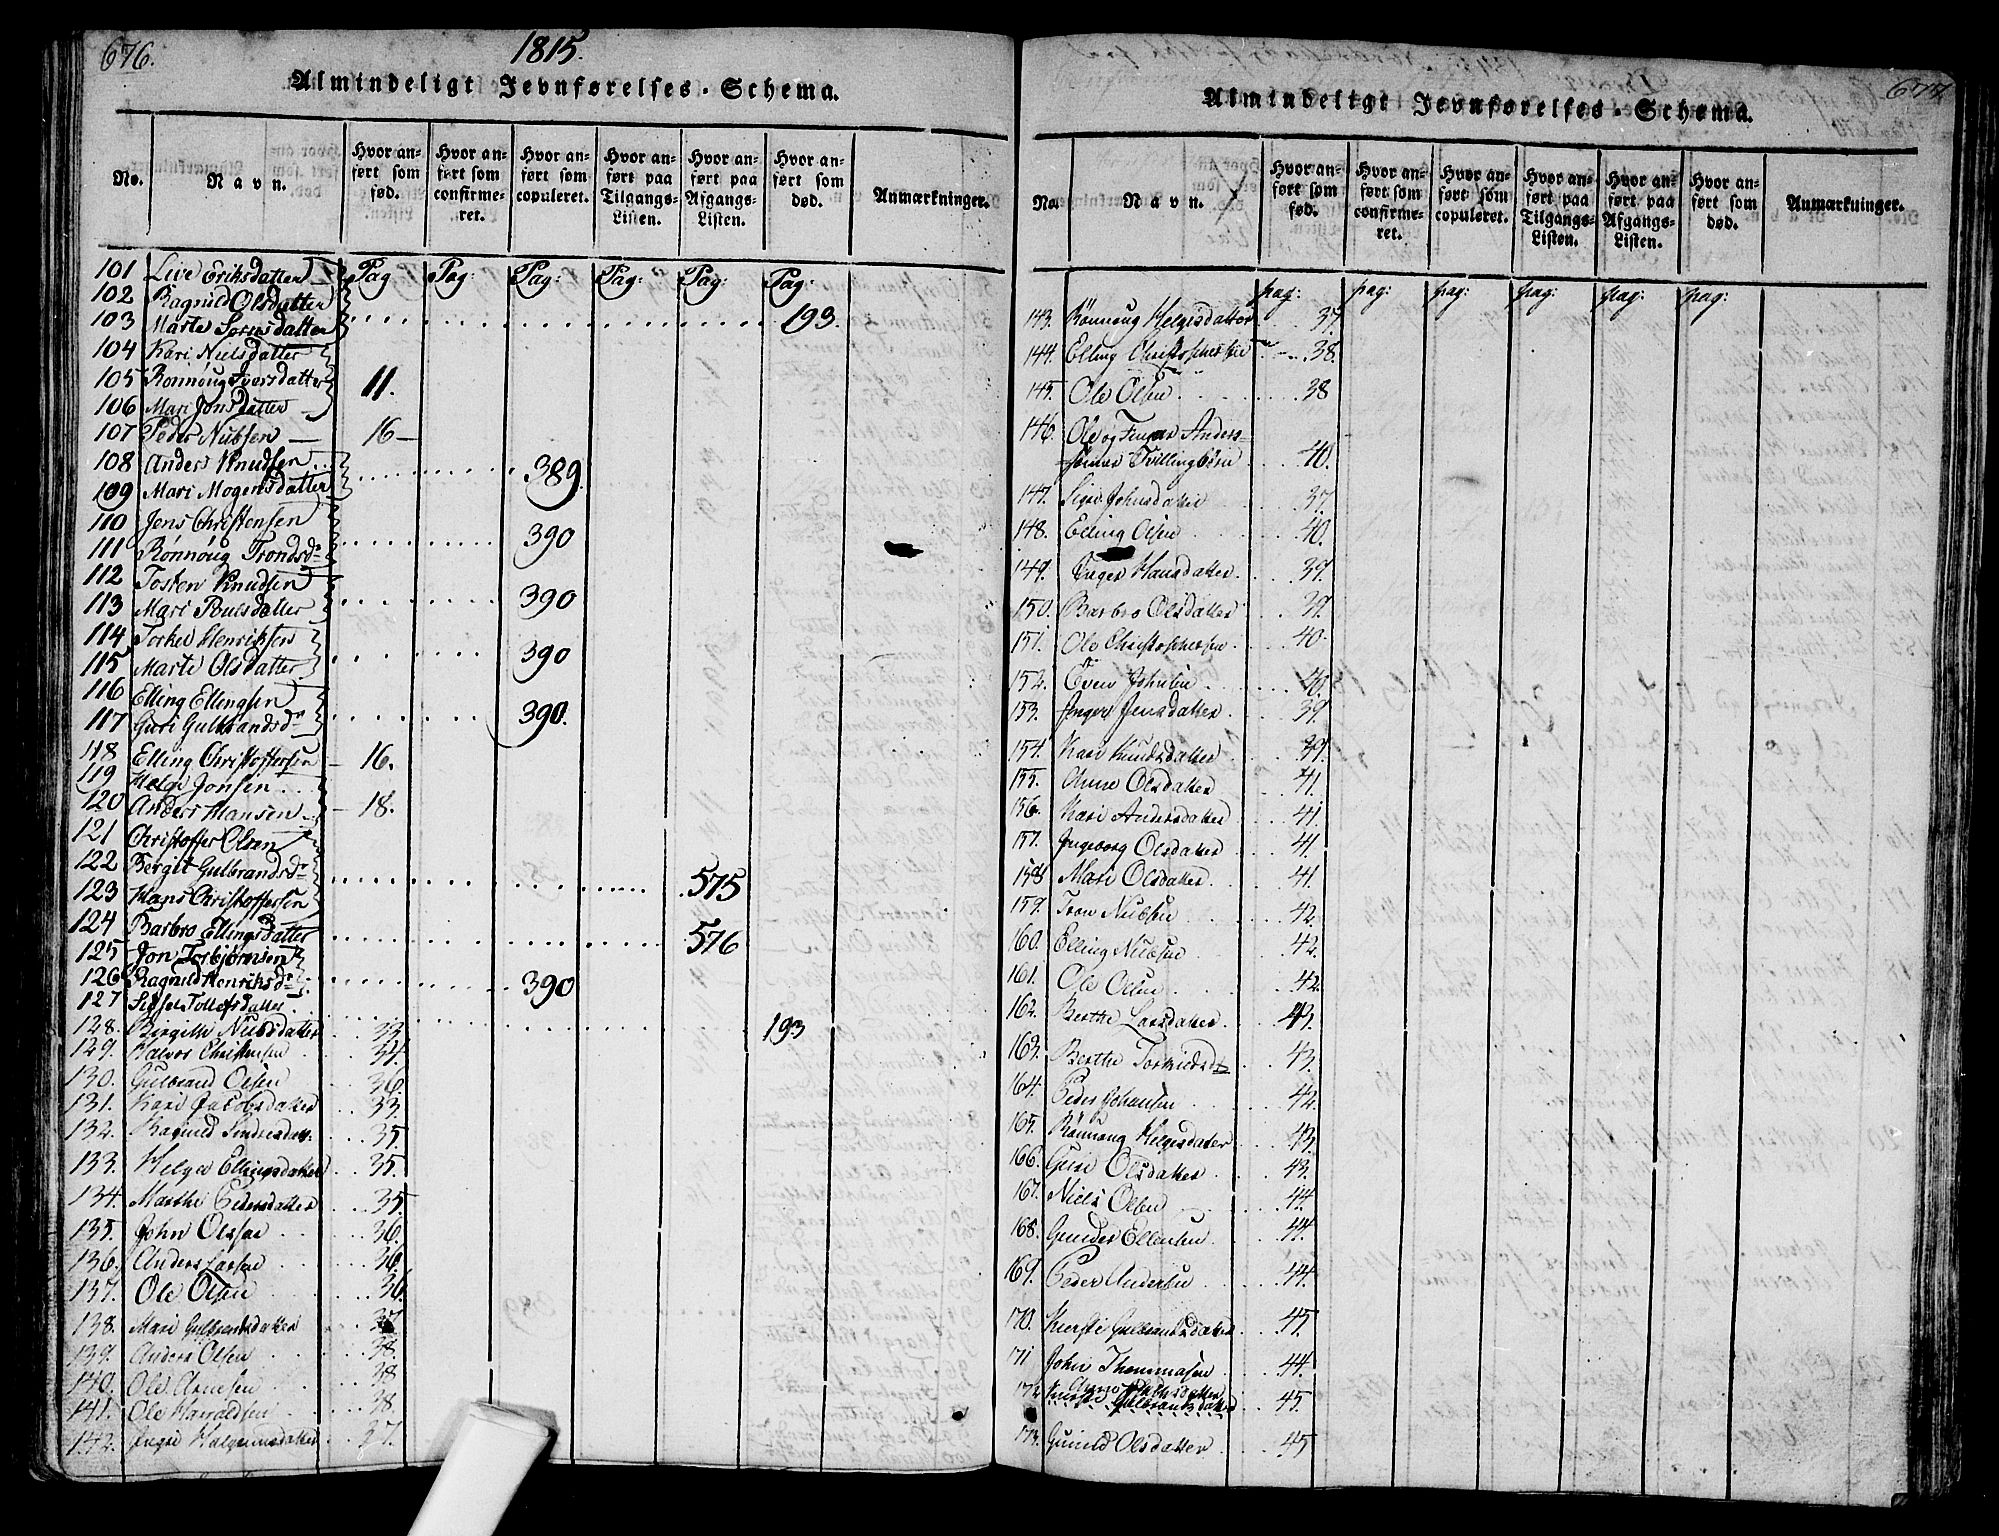 676.
1815.
Almindeligt Jevnførelses-Schema.
No.
Navn.
Hvor anført som fød.
Hvor anført som confirmeret.
Hvor anført som copuleret.
Hvor anført paa Tilgangs-Listen.
Hvor anført paa Afgangs-Listen.
Hvor anført som død.
Anmærkninger.
Pag Pag: Pag: Pag: Pag: Pag:
101 Live Eriksdatter
102 Ragnild Olsdatter
103 Marte Sørensdatter 193.
104 Kari Nielsdatter
105 Rønnoug Iversdatter 11.
106 Mari Jonsdatter
107 Peder Nielsen 16
108 Anders Knudsen
109 Mari Mogensdatter 389.
110 Jens Christensen
111 Rønnoug Trondsd: 390
112 Tosten Knudsen
113 Mari Poulsdatter 390
114 Torkel Henriksen
115 Marte Olsdatter 390
116 Elling Ellengsen
117 Guri Gulbrandsd: 390.
118 Elling Christoffersen 16.
119 Helge Jonsen
120 Anders Hansen 18.
121 Christoffer Olsen
122 Bergit Gulbrandsd:
123 Hans Christoffersen 575
124 Barbro Ellingsdatter
125 Jon Torbjørnsen 576
126 Ragnild Henriksd:
127 Sidsel Tollefsdatter 390
193
128. Birgithe Nielsdatter 33.
129. Halvor Christensen 34.
130. Gulbrand Olsen 36
131. Kari Jacobsdatter 33.
132. Ragnild 35.
133. Helga Ellingsdatter 35.
134. Marthe Pedersdatter 35
135. John Olsen 36.
136. Anders Larsen 36.
137. Ole Olsen 36.
138. Mari Gulbrandsdatter 37
139. Anders Olsen 38.
140. Ole Arnesen 38
141. Ole Haraldsen 38.
142. Ingri 37.
677
Almindeligt Jevnførelses-Schema.
No.
Navn.
Hvor anført som fød.
Hvor anført som confirmeret.
Hvor anført som copuleret.
Hvor anført paa Tilgangs-Listen.
Hvor anført paa Afgangs-Listen.
Hvor anført som død.
Anmærkninger.
pag: pag: pag: pag: pag: pag:
143. Rönnoug Helgesdatter 37.
144. Elling Christophersen 38.
145. Ole Olsen 38
146. Ole og Anders-
sönner Tvillingbörn 40.
147. Sigri Johnsdatter 37.
148. Elling Olsen 40.
149. Inger Hansdatter 39.
150. Barbro Olsdatter 39.
151. Ole Christophersen 40.
152. Even Johnsen 40.
153. Inger Jensdatter 39.
154. Kari Knudsdatter 39.
155. Anne Olsdatter 41.
156. Kari Andersdatter 41.
157. Ingeborg Olsdatter 41.
158 Mari Olsdatter. 41.
159. Tron Nielsen 42.
160. Elling Nielsen 42.
161. Ole Olsen 42.
162. Berthe Larsdatter. 43.
163. Berthe 43.
164. Peder Johansen 42.
165. Rönnoug Helgesdatter 43.
166. Guri Olsdatter 43.
167. Niels Olsen 44.
168. Gunder Ellensen 44.
169. Peder Andersen 44.
170. Kierste Gulbrandsdatter 45.
171 John Thommasen 44.
172 Kierste Gulbrandsdatter 45.
173. Gunild Olsdatter 45